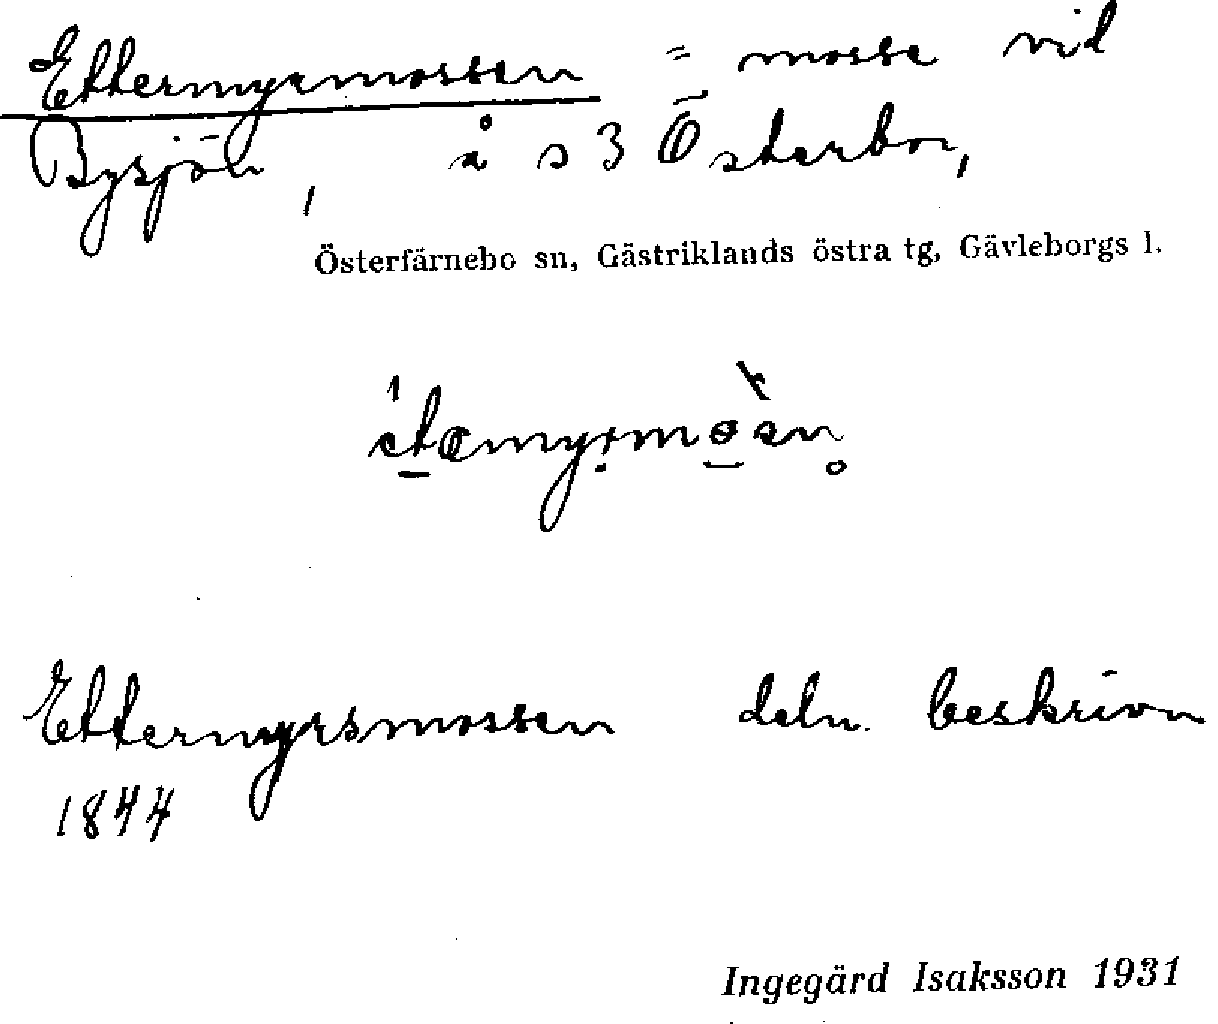 Ettermyrmossen = mosse vid
Bysjön, å s 3 Österbor,
Österfärnebo sn, Gästriklands östra tg, Gävleborgs l.
Ettermyrsmossen deln. beskrivn
1844
Ingegärd Isaksson 1931